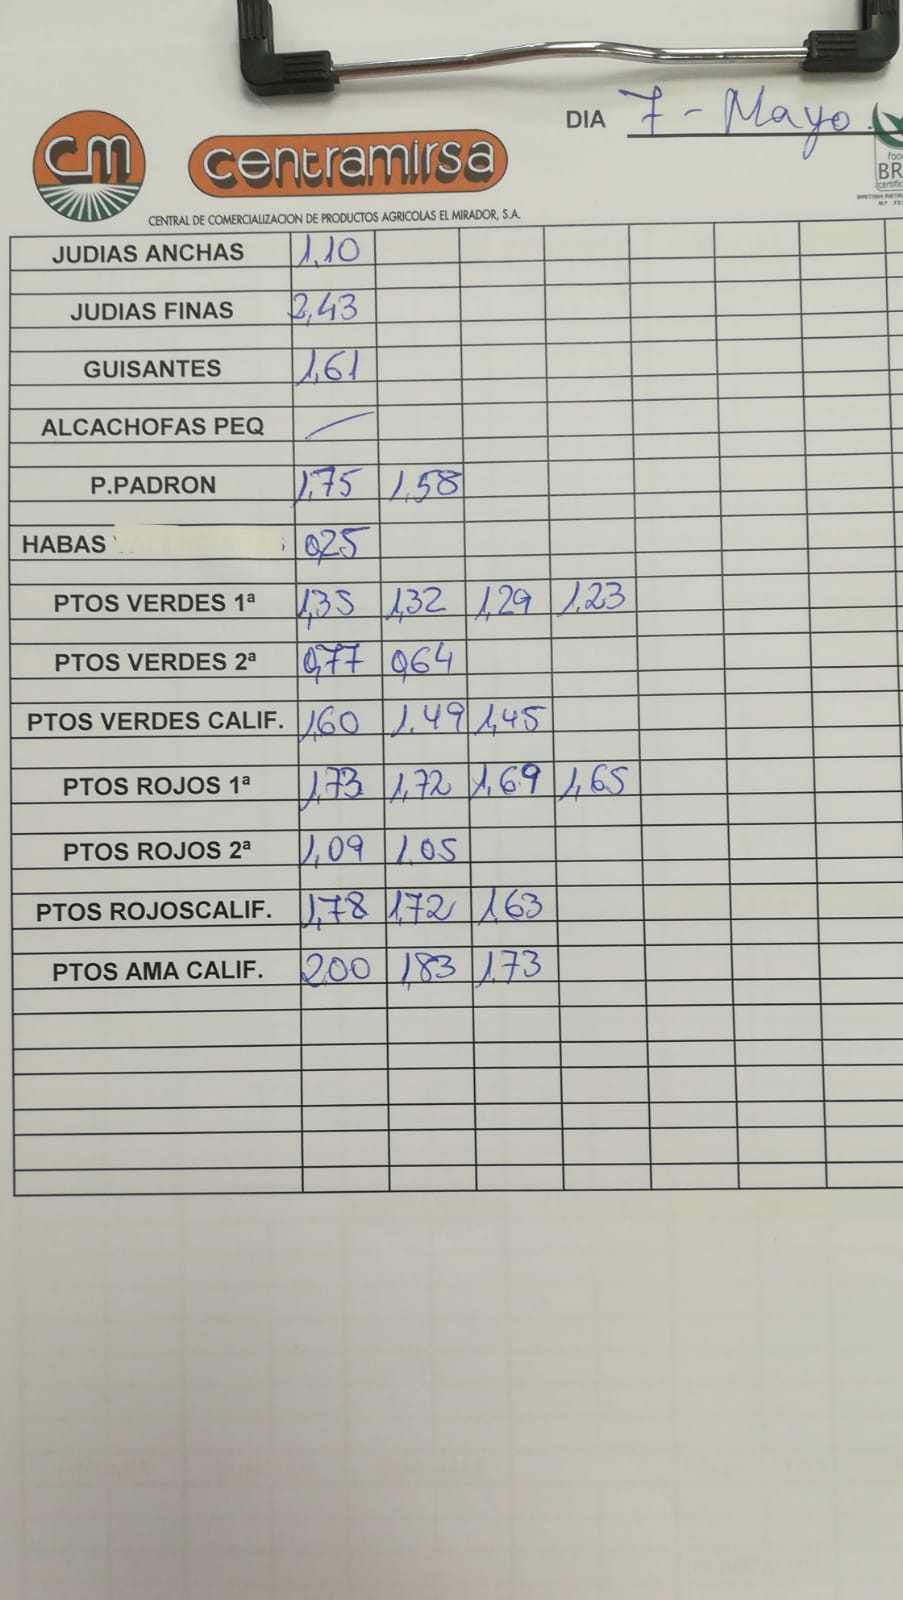 DIA 7 - Mayo.
CM centramirsa
CENTRAL DE COMERCIALIZACION DE PRODUCTOS AGRICOLAS EL MIRADOR, S.A.
JUDIAS ANCHAS 1,10
JUDIAS FINAS 2,43
GUISANTES 1,61
ALCACHOFAS PEQ —
P.PADRON 1,75 1,58
HABAS 0,25
PTOS VERDES 1ª 1,35 1,32 1,29 1,23
PTOS VERDES 2ª 0,77 0,64
PTOS VERDES CALIF. 1,60 1,49 1,45
PTOS ROJOS 1ª 1,73 1,72 1,69 1,65
PTOS ROJOS 2ª 1,09 1,05
PTOS ROJOSCALIF. 1,78 1,72 1,63
PTOS AMA CALIF. 2,00 1,83 1,73